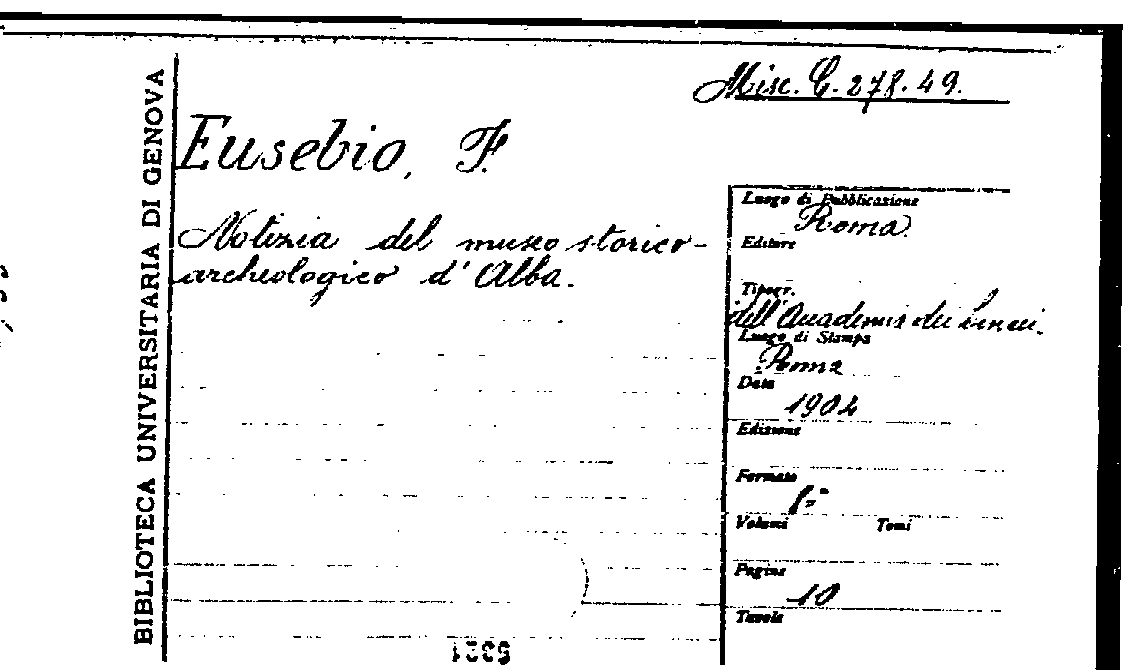 BIBLIOTECA UNIVERSITARIA DI GENOVA
Misc. G. 278. 49.
Eusebio, F.
Notizia del museo storico-
archeologico d'Alba.
Luogo di Pubblicazione
Roma
Editore
Tipogr.
dell'Accademia dei Lincei.
Luogo di Stampa
Roma
Data
1904
Edizione
Formato
Volumi Tomi
Pagine
10
Tavole